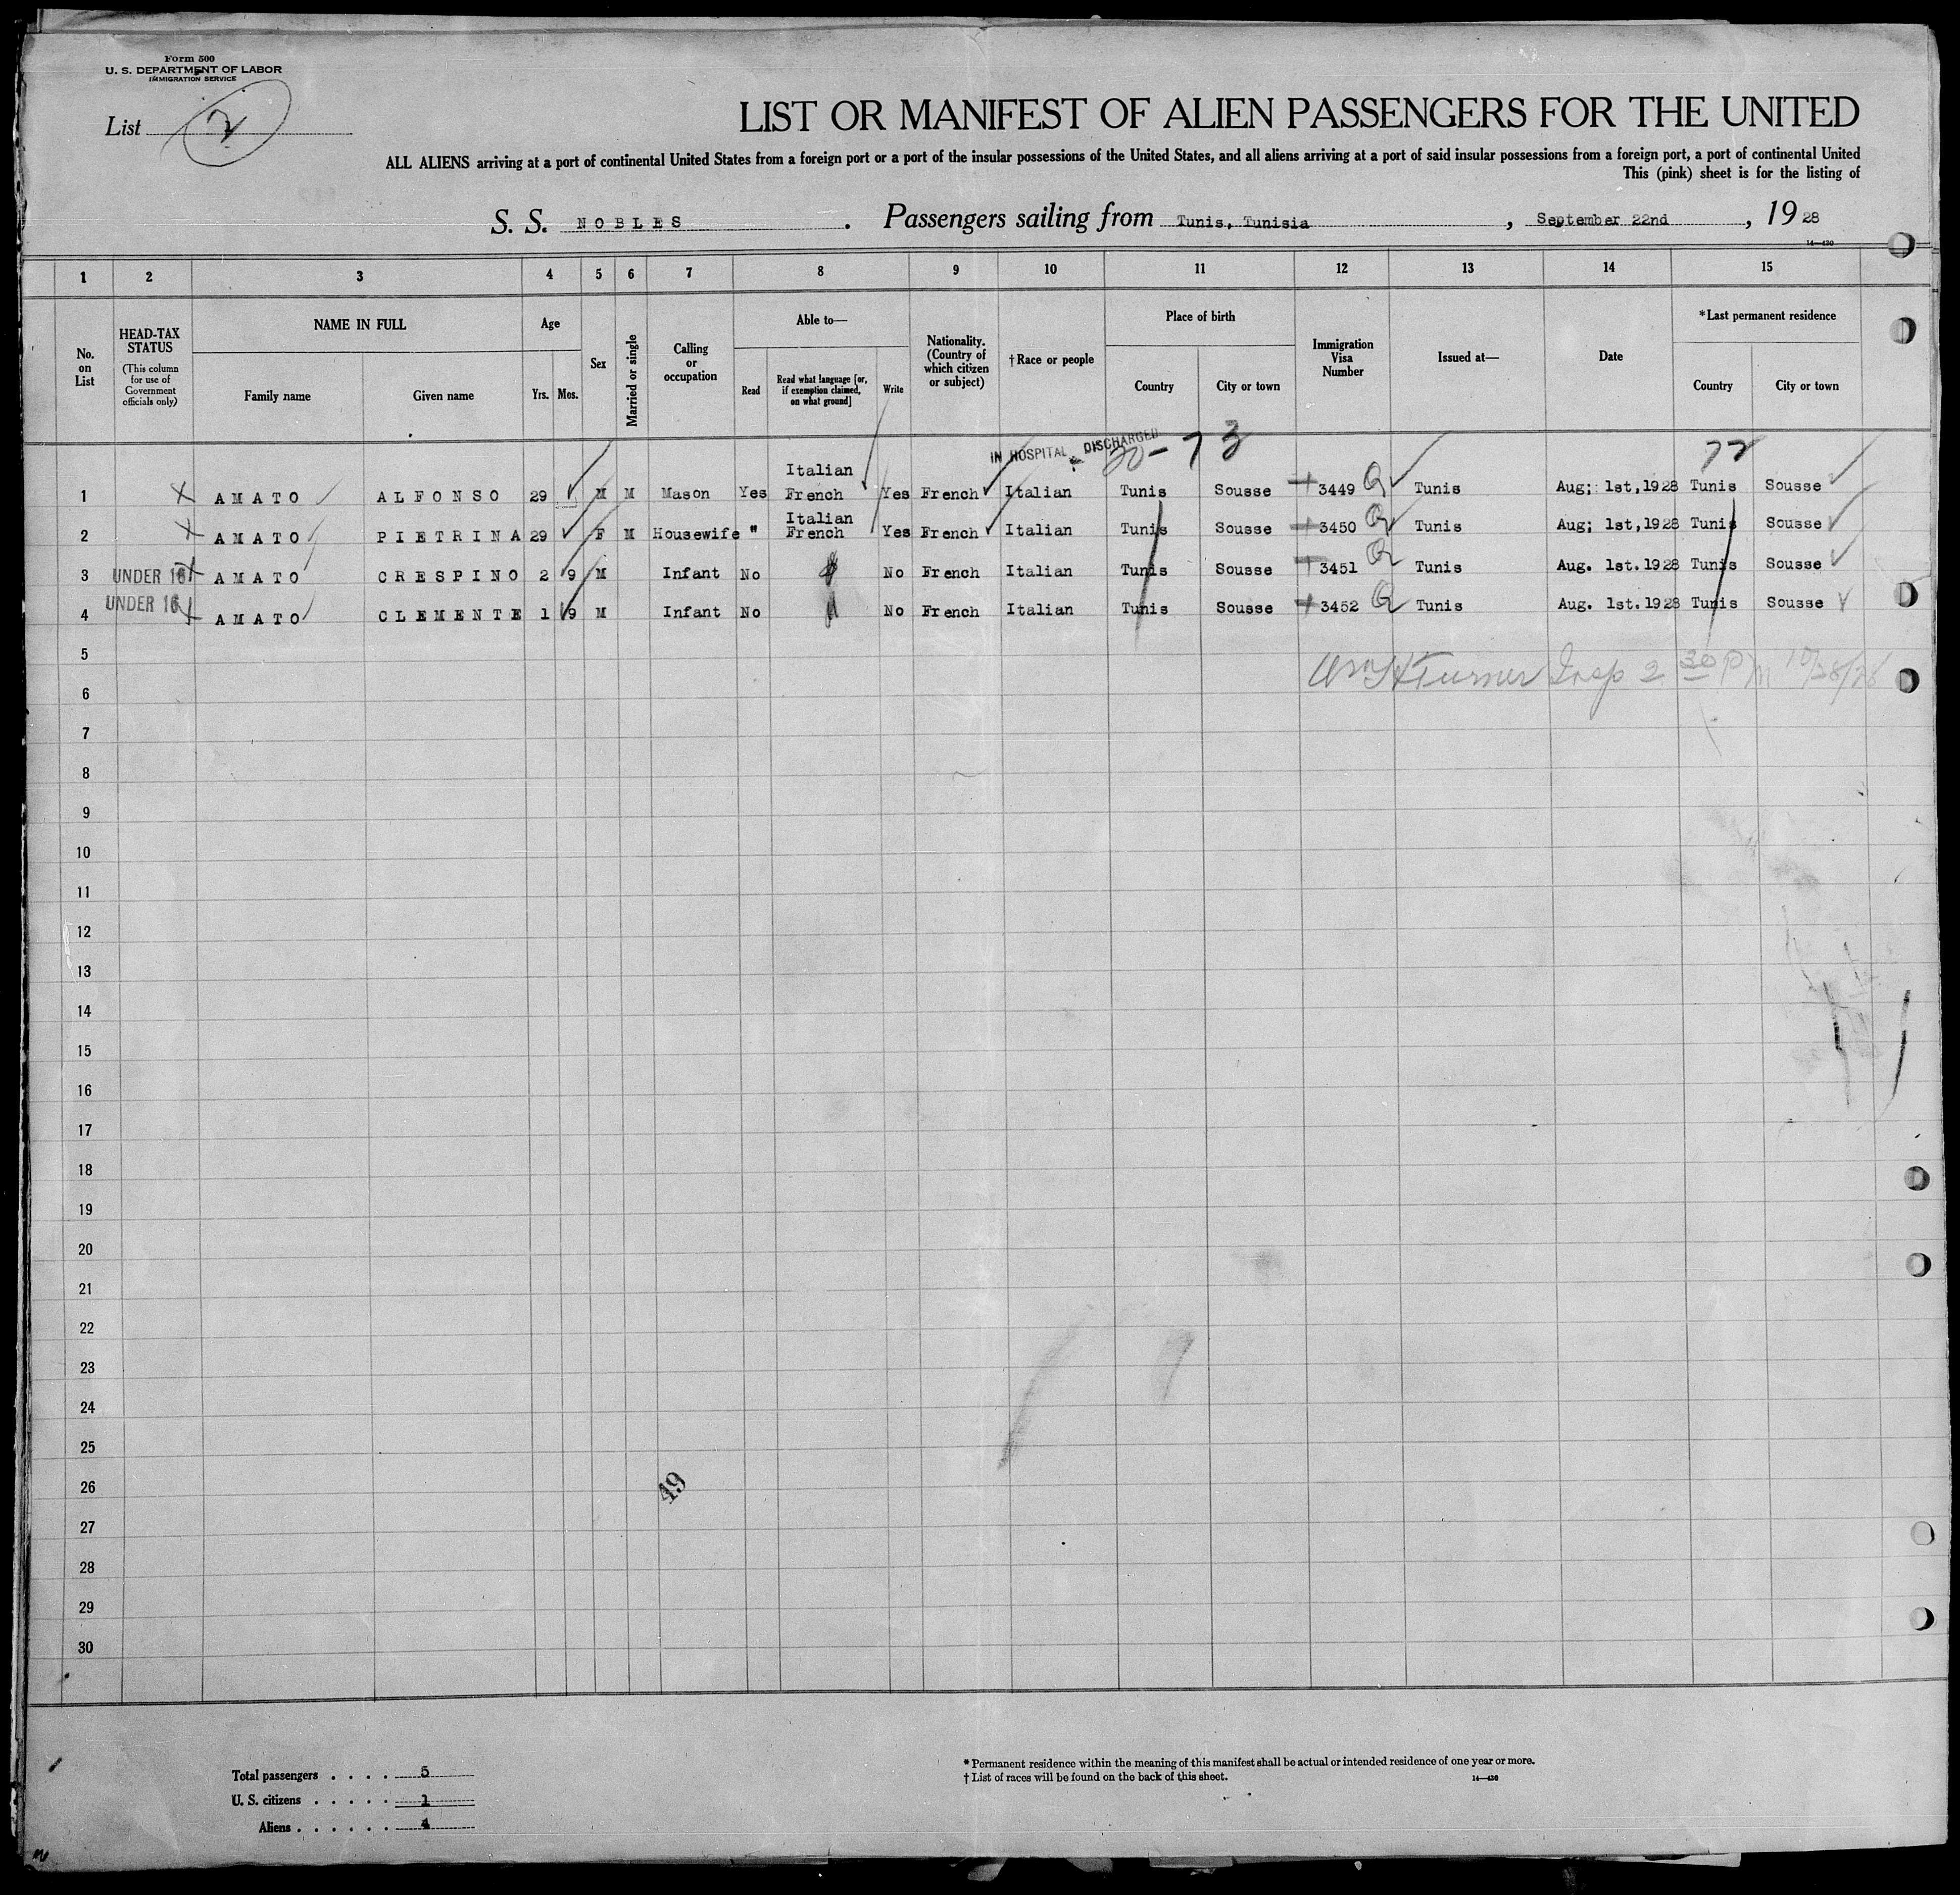 Form 500
U. S. DEPARTMENT OF LABOR
IMMIGRATION SERVICE
List 2
LIST OR MANIFEST OF ALIEN PASSENGERS FOR THE UNITED
ALL ALIENS arriving at a port of continental United States from a foreign port or a port of the insular possessions of the United States, and all aliens arriving at a port of said insular possessions from a foreign port, a port of continental United
This (pink) sheet is for the listing of
S. S. NOBLES . Passengers sailing from Tunis, Tunisia , September 22nd , 19 28
14—430
1 2 3 4 5 6 7 8 9 10 11 12 13 14 15
No. on List
HEAD-TAX STATUS
(This column for use of Government officials only)
NAME IN FULL
Family name Given name
Age
Yrs. Mos.
Sex
Married or single
Calling or occupation
Able to—
Read
Read what language [or, if exemption claimed, on what ground]
Write
Nationality. (Country of which citizen or subject)
†Race or people
Place of birth
Country City or town
Immigration Visa Number
Issued at—
Date
*Last permanent residence
Country City or town
IN HOSPITAL DISCHARGED
20— 73 72
1 AMATO ALFONSO 29 M M Mason Yes Italian French Yes French Italian Tunis Sousse 3449 Q Tunis Aug; 1st,1928 Tunis Sousse
2 AMATO PIETRINA 29 F M Housewife " Italian French Yes French Italian Tunis Sousse 3450 Q Tunis Aug; 1st,1928 Tunis Sousse
3 UNDER 16 AMATO CRESPINO 2 9 M Infant No No French Italian Tunis Sousse 3451 Q Tunis Aug. 1st.1928 Tunis Sousse
4 UNDER 16 AMATO CLEMENTE 1 9 M Infant No No French Italian Tunis Sousse 3452 Q Tunis Aug. 1st.1928 Tunis Sousse
5
Wm H Turner Insp 2 30 PM 10/28/28
6
7
8
9
10
11
12
13
14
15
16
17
18
19
20
21
22
23
24
25
26
49
27
28
29
30
Total passengers . . . . 5
U. S. citizens . . . . . 1
Aliens . . . . . . 4
* Permanent residence within the meaning of this manifest shall be actual or intended residence of one year or more.
† List of races will be found on the back of this sheet.
14—430